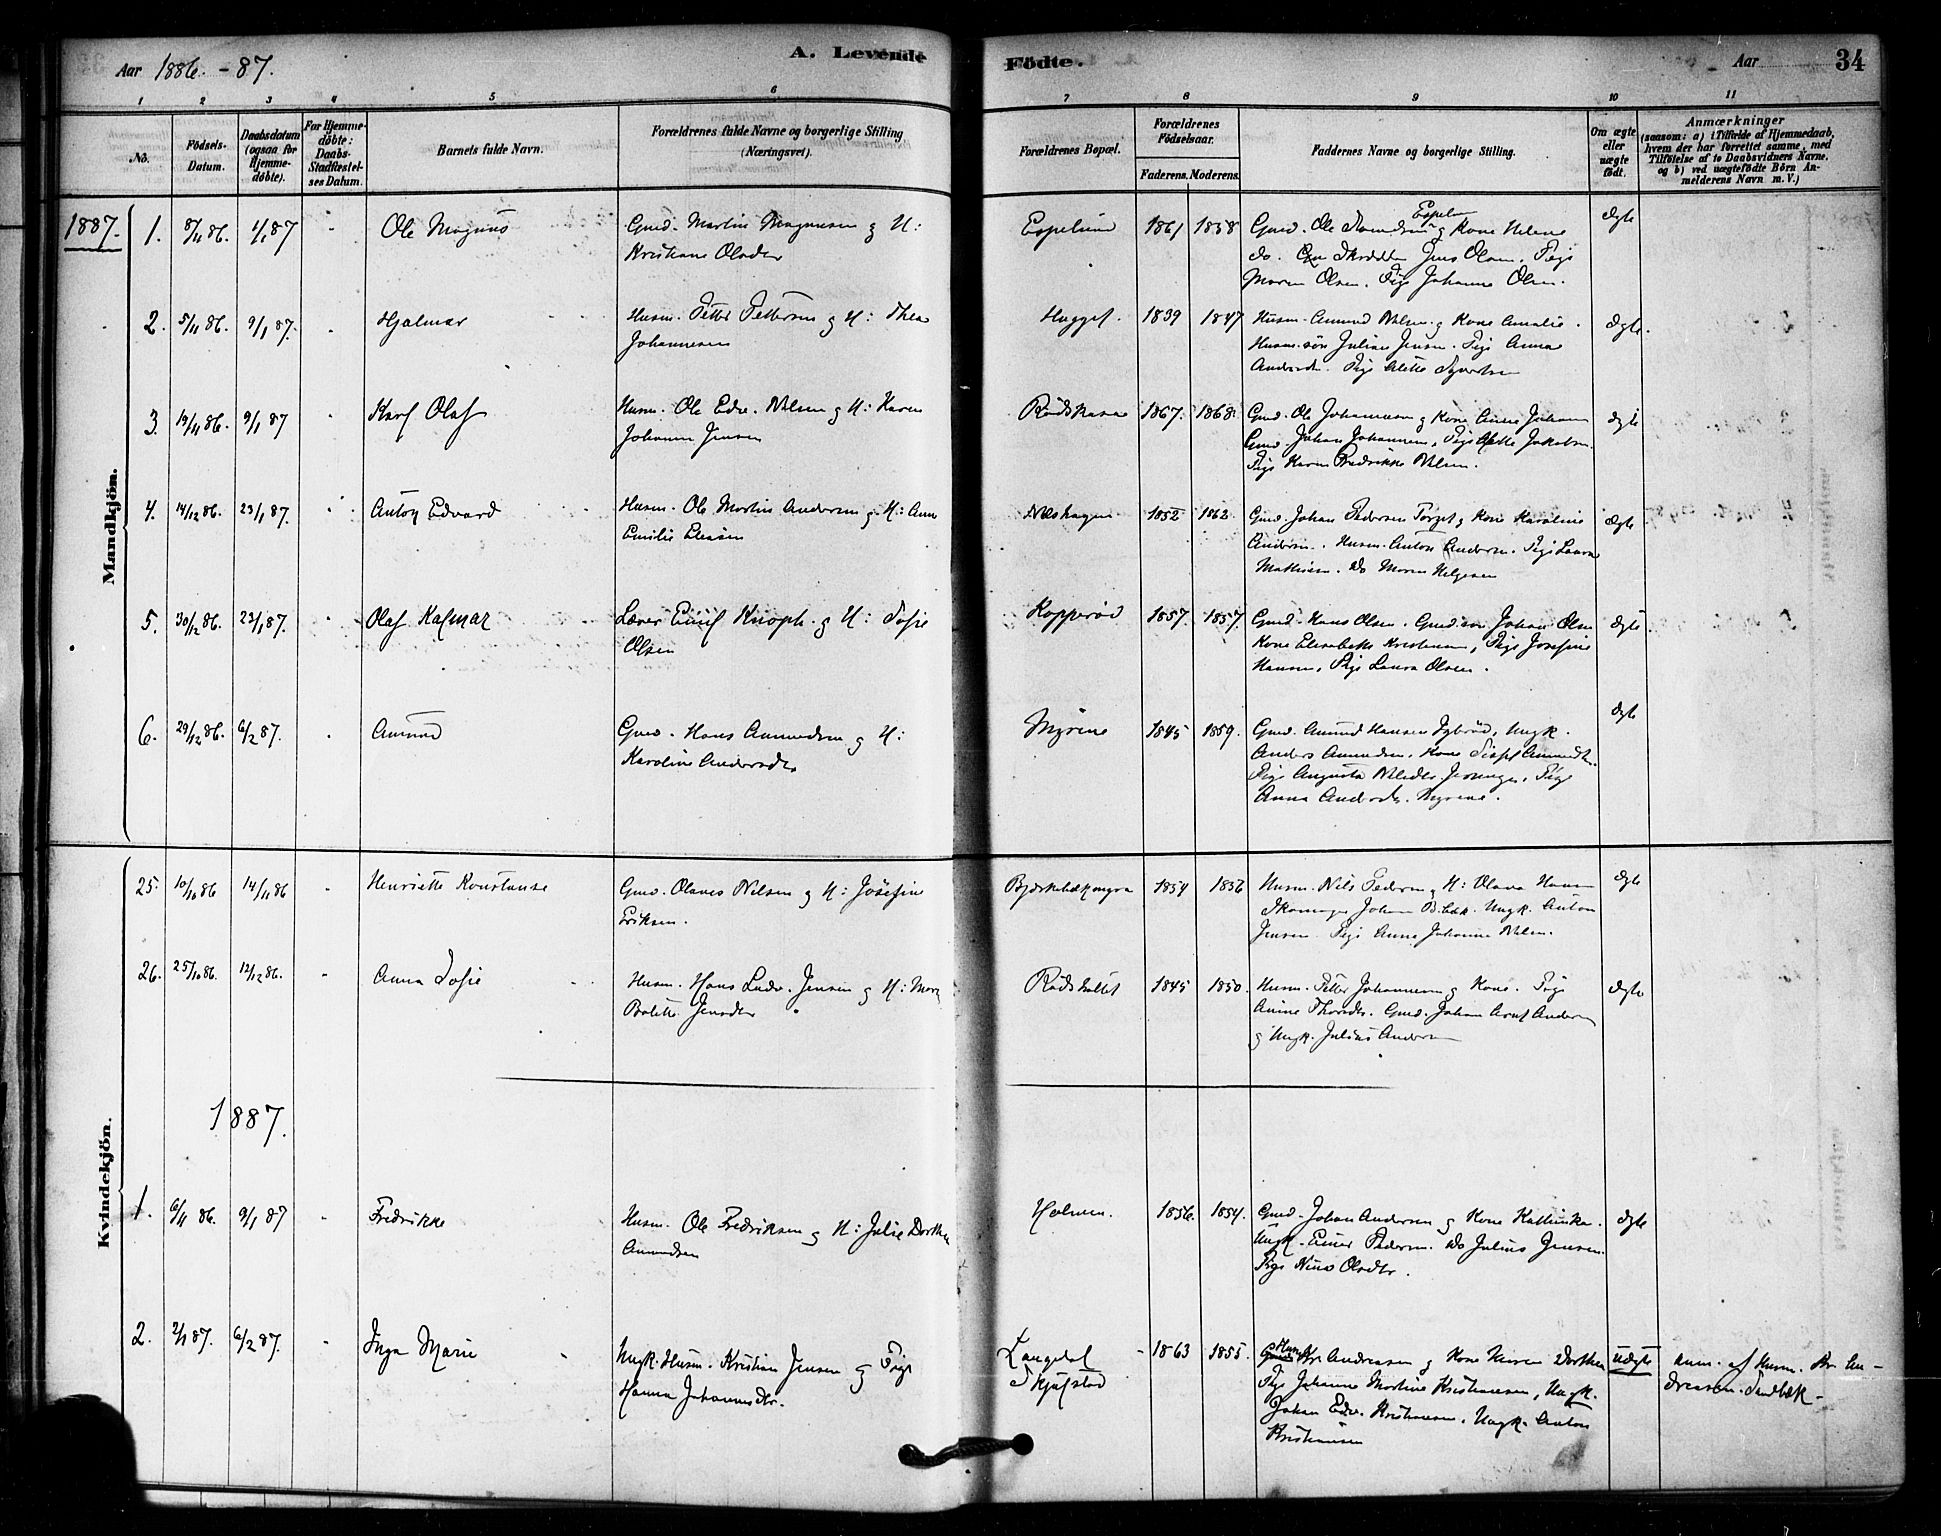 Aar 1886. - 87.
A. Levende
Födte.
Aar
34
1 2 3 4 5 6 7 8 9 10 11
No.
Födsels-Datum.
Daabsdatum (ogsaa for Hjemme-döbte).
For Hjemme-døbte: Daabs-Stadfæstel-ses Datum.
Barnets fulde Navn.
Forældrenes fulde Navne og borgerlige Stilling (Næringsvei).
Forældrenes Bopæl.
Forældrenes Födselsaar.
Faderens. Moderens.
Faddernes Navne og borgerlige Stilling.
Om ægte eller uægte födt.
Anmærkninger
(saasom: a) i Tilfælde af Hjemmedaab, hvem der har forrettet samme, med Tilföielse af to Daabsvidners Navne, og b) ved uægtefödte Börn An-melderens Navn m. V.)
1887.
Mandkjön.
1. 8/11 86. 1/1 87 Ole Magnus
Gmd. Martin Magnusen og H:
Kristiane Olsdtr
Espelund 1861 1858
Gmd. Ole Espelun og Kone Helene
do. Jens Olsen. Pige
Maren Olsen. Pige Johanne Olsen.
Ægte
2. 5/11 86. 9/1 87. Hjalmar
Husm. Petter Pettersen og H: Thea
Johannesen
Hugget. 1839 1847
Husm. Amund Nilsen og Kone Amalie.
Husm. søn Julius Jensen. Pige Anna
Andersdtr. Pige Alette
Ægte.
3. 19/11 86. 9/1 87 Karl Olaf
Husm. Ole Edv. Nilsen og H: Karen
Johanne Jensen
1867. 1868.
Gmd. Ole Johannesen og Kone Anne Johanne
Gmd. Johan Johannesen, Pige Jakobsen
Pige Karen Fredrikke Nilsen.
Ægte
4. 14/12 86. 23/1 87. Anton Edvard
Husm. Ole Martin Andersen og H: Anne
Emilie Eliasen
1852 1862
Gmd. Johan Pedersen Torpet og Kone Karoline
Andersen. Husm. Anton Andersen. Pige Laura
Mathisen. do Maren Helgesen
Ægte
5. 30/12 86. 23/1 87. Olaf Kalmar
Lærer Emil Knoph og H: Sofie
Olsen
Kopperød 1857. 1857.
Gmd. Hans Olsen. Gmd. søn Johan Olsen
Kone Elisabeth Kristensen, Pige Josefine
Hansen, Pige Laura Olsen.
Ægte.
6. 29/12 86. 6/2 87. Amund
Gmd. Hans Amundsen og H:
Karoline Andersdtr
Myrene 1845 1859.
Gmd. Amund Hansen, Ungk.
Anders Amundsen, Kone Amundsdtr.
Pige Augusta Nilsdtr, Pige
Anna Andersdtr. Myrene.
Ægte
Kvindekjön.
25. 10/10 86 14/11 86 Henriette Konstanse
Gmd. Olaves Nilsen og H: Josefine
Eriksen.
1854 1856
Husm. Nils Pedersen og H: Olava Hansen
Skomager Johan. Ungk. Anton
Jensen. Pige Anne Johanne Nilsen.
Ægte
26. 25/10 86. 12/12 86. Anna Sofie
Husm. Hans Ludv. Jensen og H:
Bolette Jensdtr
Rødshallet 1845 1850.
Husm. Petter Johannesen og Kone. Pige
Anine. Gmd. Johan Andersen
og Ungk. Julius Andersen
Ægte
1887.
1. 6/11 86. 9/1 87 Fredrikke
Husm. Ole Fredriksen og H: Julie Dorthea
Amundsen
Holmen. 1856. 1854.
Gmd. Johan Andersen og Kone Kathinka.
Ungk. Einar Pedersen. do Julius Jensen.
Pige Olsdtr.
Ægte
2. 2/1 87. 6/2 87. Inga Marie
Ungk. Husm. Kristian Jensen og Pige
Hanna Johannesdtr.
Langeløt
Skjulstad
1863 1855.
Husm. Kr. Andreasen og Kone Karen Dorthea
Pige Johanne Martine Kristiansen, Ungk.
Johan Edv. Kristiansen. Ungk. Anton
Kristiansen
Uægte
Anm. af Husm. Kr. An-
dreasen. Sandbæk -